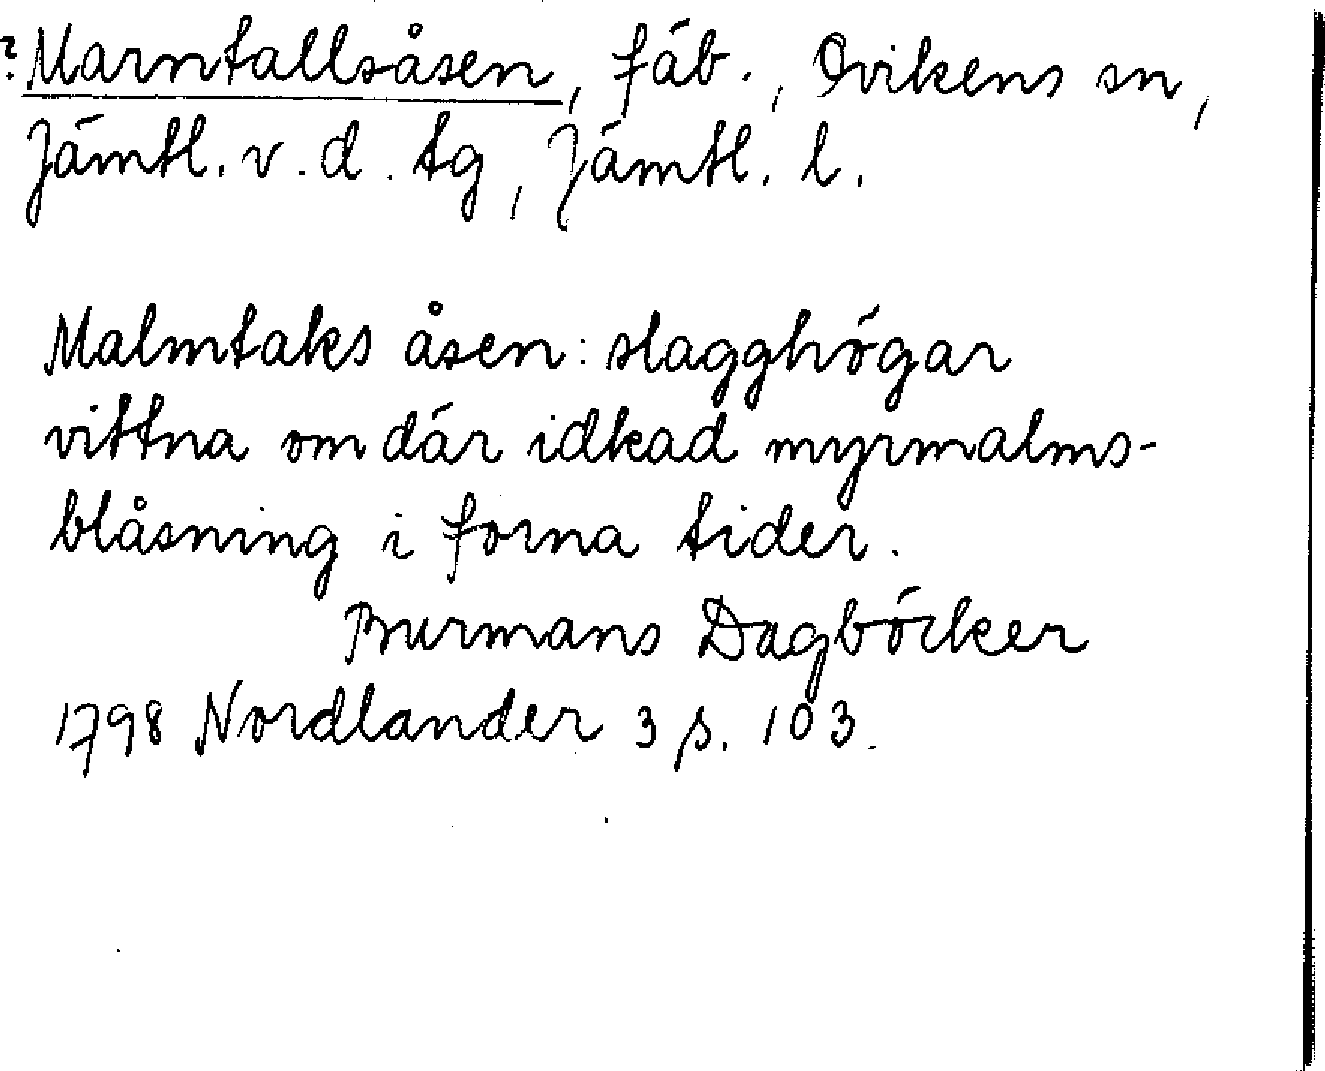 ? Marntallsåsen, fäb., Ovikens sn,
Jämtl. v. d. tg, Jämtl. l.
Malmtaks åsen: slagghögar
vittna om där idkad myrmalms-
blåsning i forna tider.
Burmans Dagböcker
1798 Nordlander 3 s. 103.